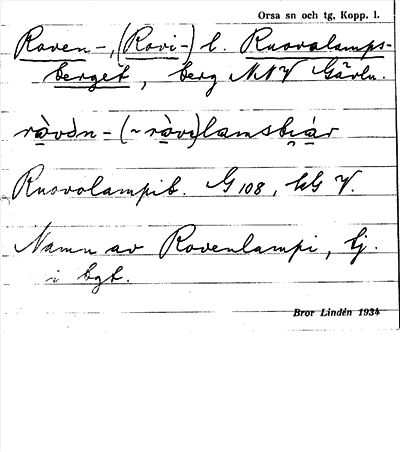 Orsa sn och tg, Kopp. l.
Roven-, (Rovi-) l. Ruovolamps-
berget, berg NNV Gävln.
Ruovolampib. G 108, kG V.
Namn av Rovenlampi, tj.
i bgt.
Bror Lindén 1934